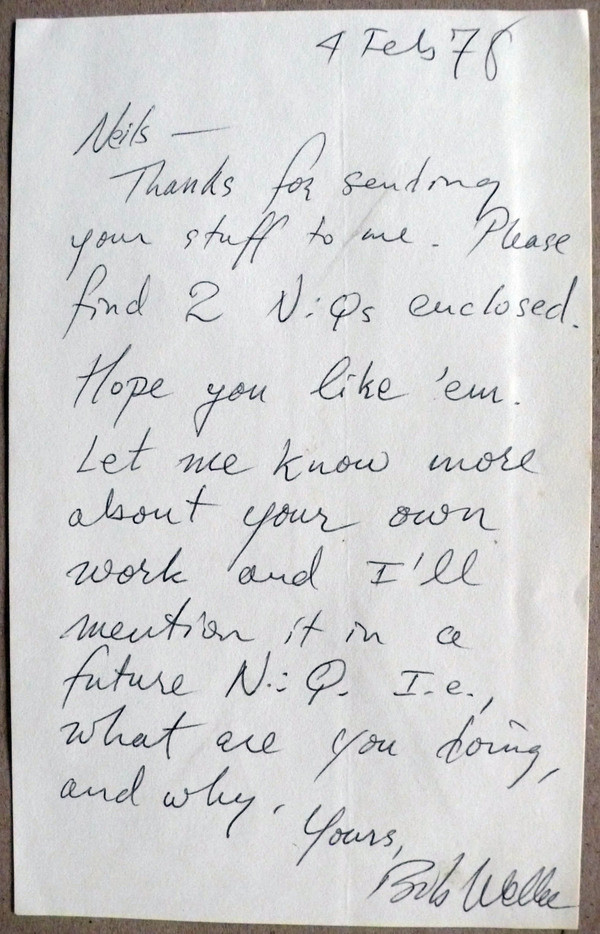 4 Feb 78
Neils —
Thanks for sending
your stuff to me. Please
find 2 N:Qs enclosed.
Hope you like 'em.
Let me know more
about your own
work and I'll
mention it in a
future N.: Q. I.e.,
what are you doing,
and why.
Yours,
Bob